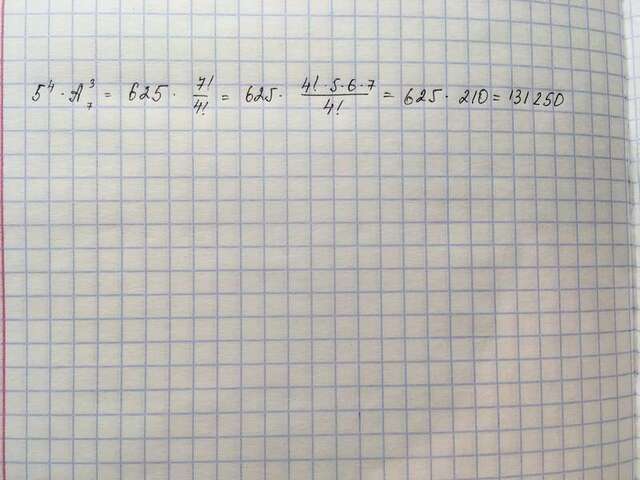 5⁴ · A₇³ = 625 · 7!/4! = 625 · 4!·5·6·7/4! = 625 · 210 = 131250